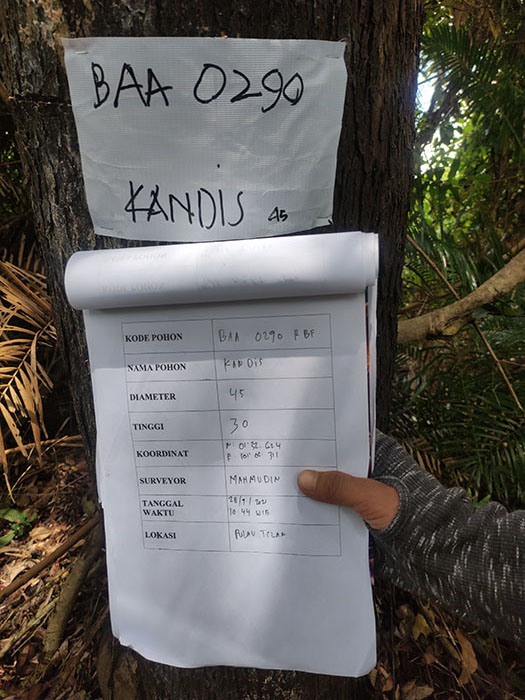 BAA 0290
KANDIS 45
KODE POHON BAA 0290 RBF
NAMA POHON KANDIS
DIAMETER 45
TINGGI 30
KOORDINAT N: 01. 22. 624
E: 101. 06 711
SURVEYOR MAHMUDIN
TANGGAL
WAKTU
10 44 WIB
LOKASI PULAU